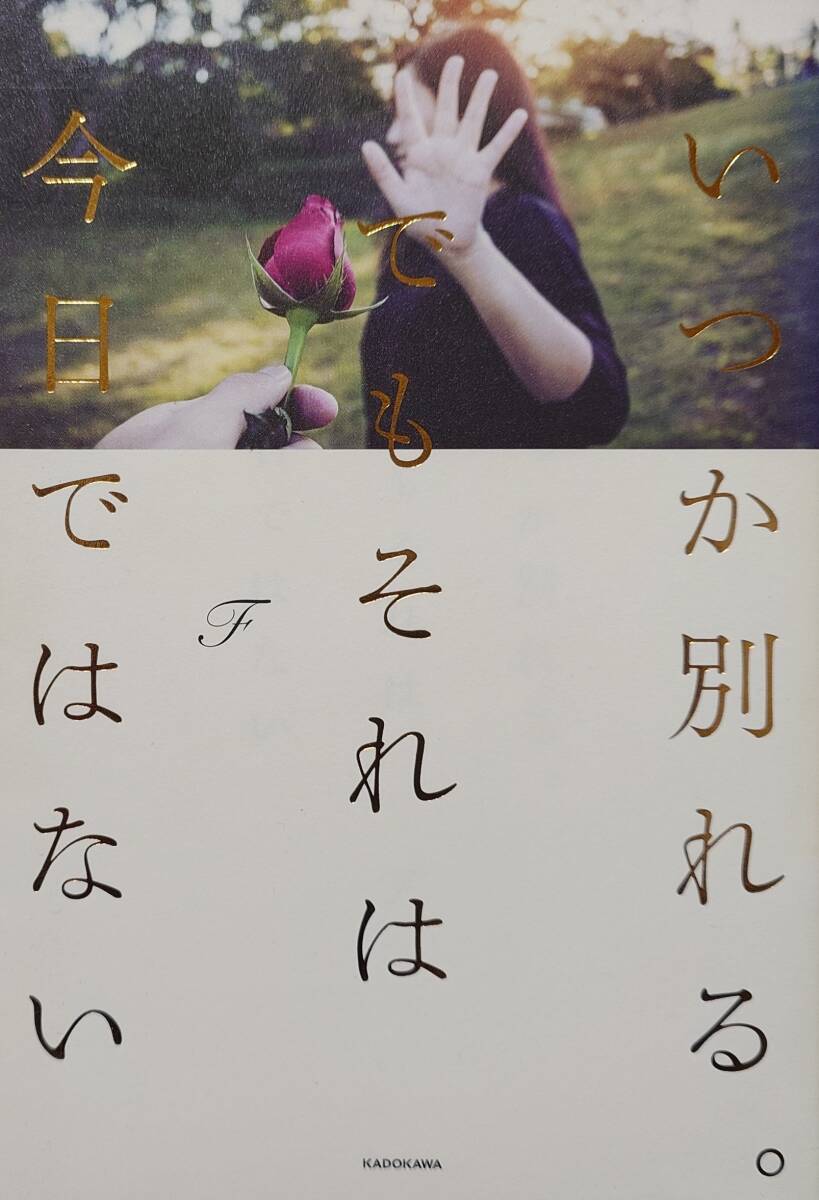 いつか別れる。
でもそれは
今日ではない
F
KADOKAWA